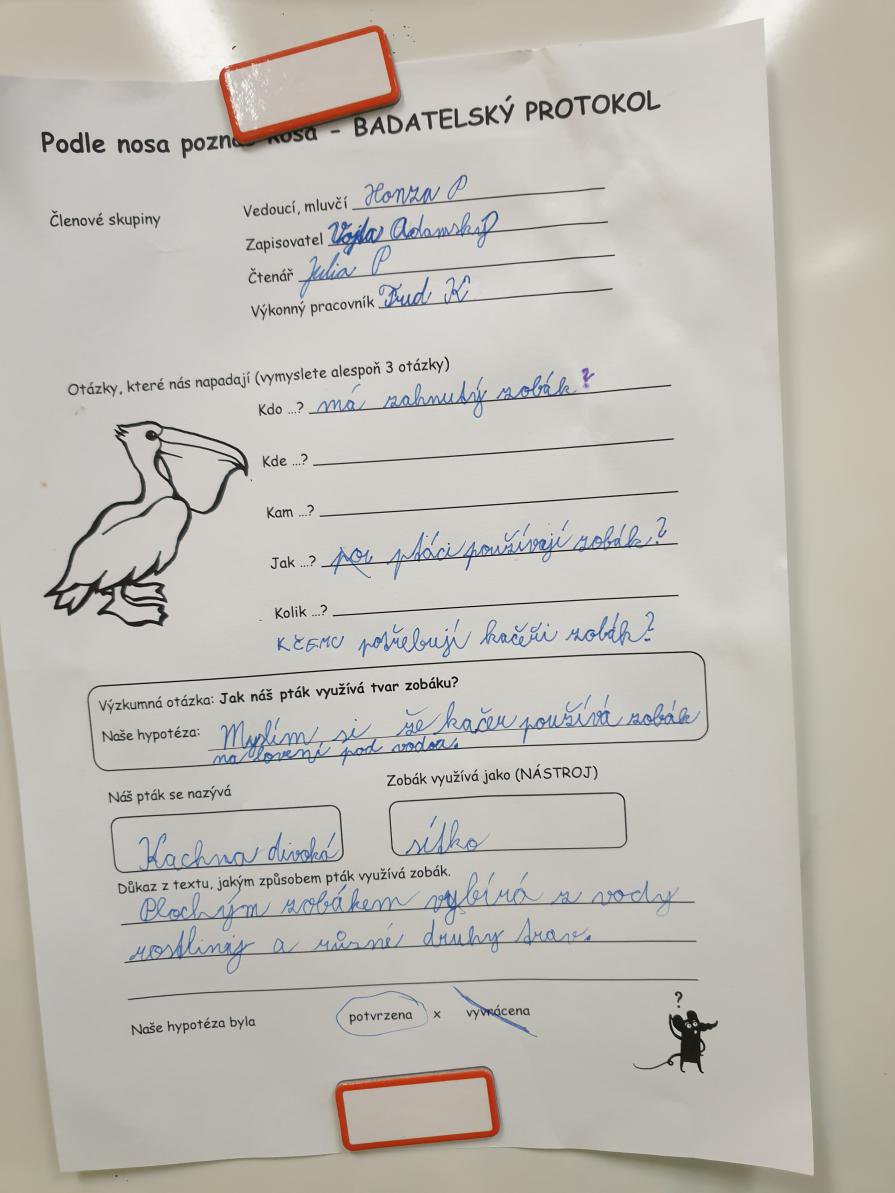 Podle nosa pozn kosa - BADATELSKÝ PROTOKOL
Členové skupiny
Vedoucí, mluvčí Honza P
Zapisovatel Vojta Adamský
Čtenář Julia P
Výkonný pracovník K
Otázky, které nás napadají (vymyslete alespoň 3 otázky)
Kdo ...? má zahnutý zobák?
Kde ...?
Kam ...?
Jak ...? ptáci používají zobák?
Kolik ...?
K ČEMU potřebují kačeři zobák?
Výzkumná otázka: Jak náš pták využívá tvar zobáku?
Naše hypotéza: Myslím si že kačer používá zobák
na lovení pod vodou.
Náš pták se nazývá
Zobák využívá jako (NÁSTROJ)
Kachna divoká
sítko
Důkaz z textu, jakým způsobem pták využívá zobák.
Plochým zobákem vybírá z vody
rostliny a různé druhy trav.
Naše hypotéza byla potvrzena x vyvrácena
?